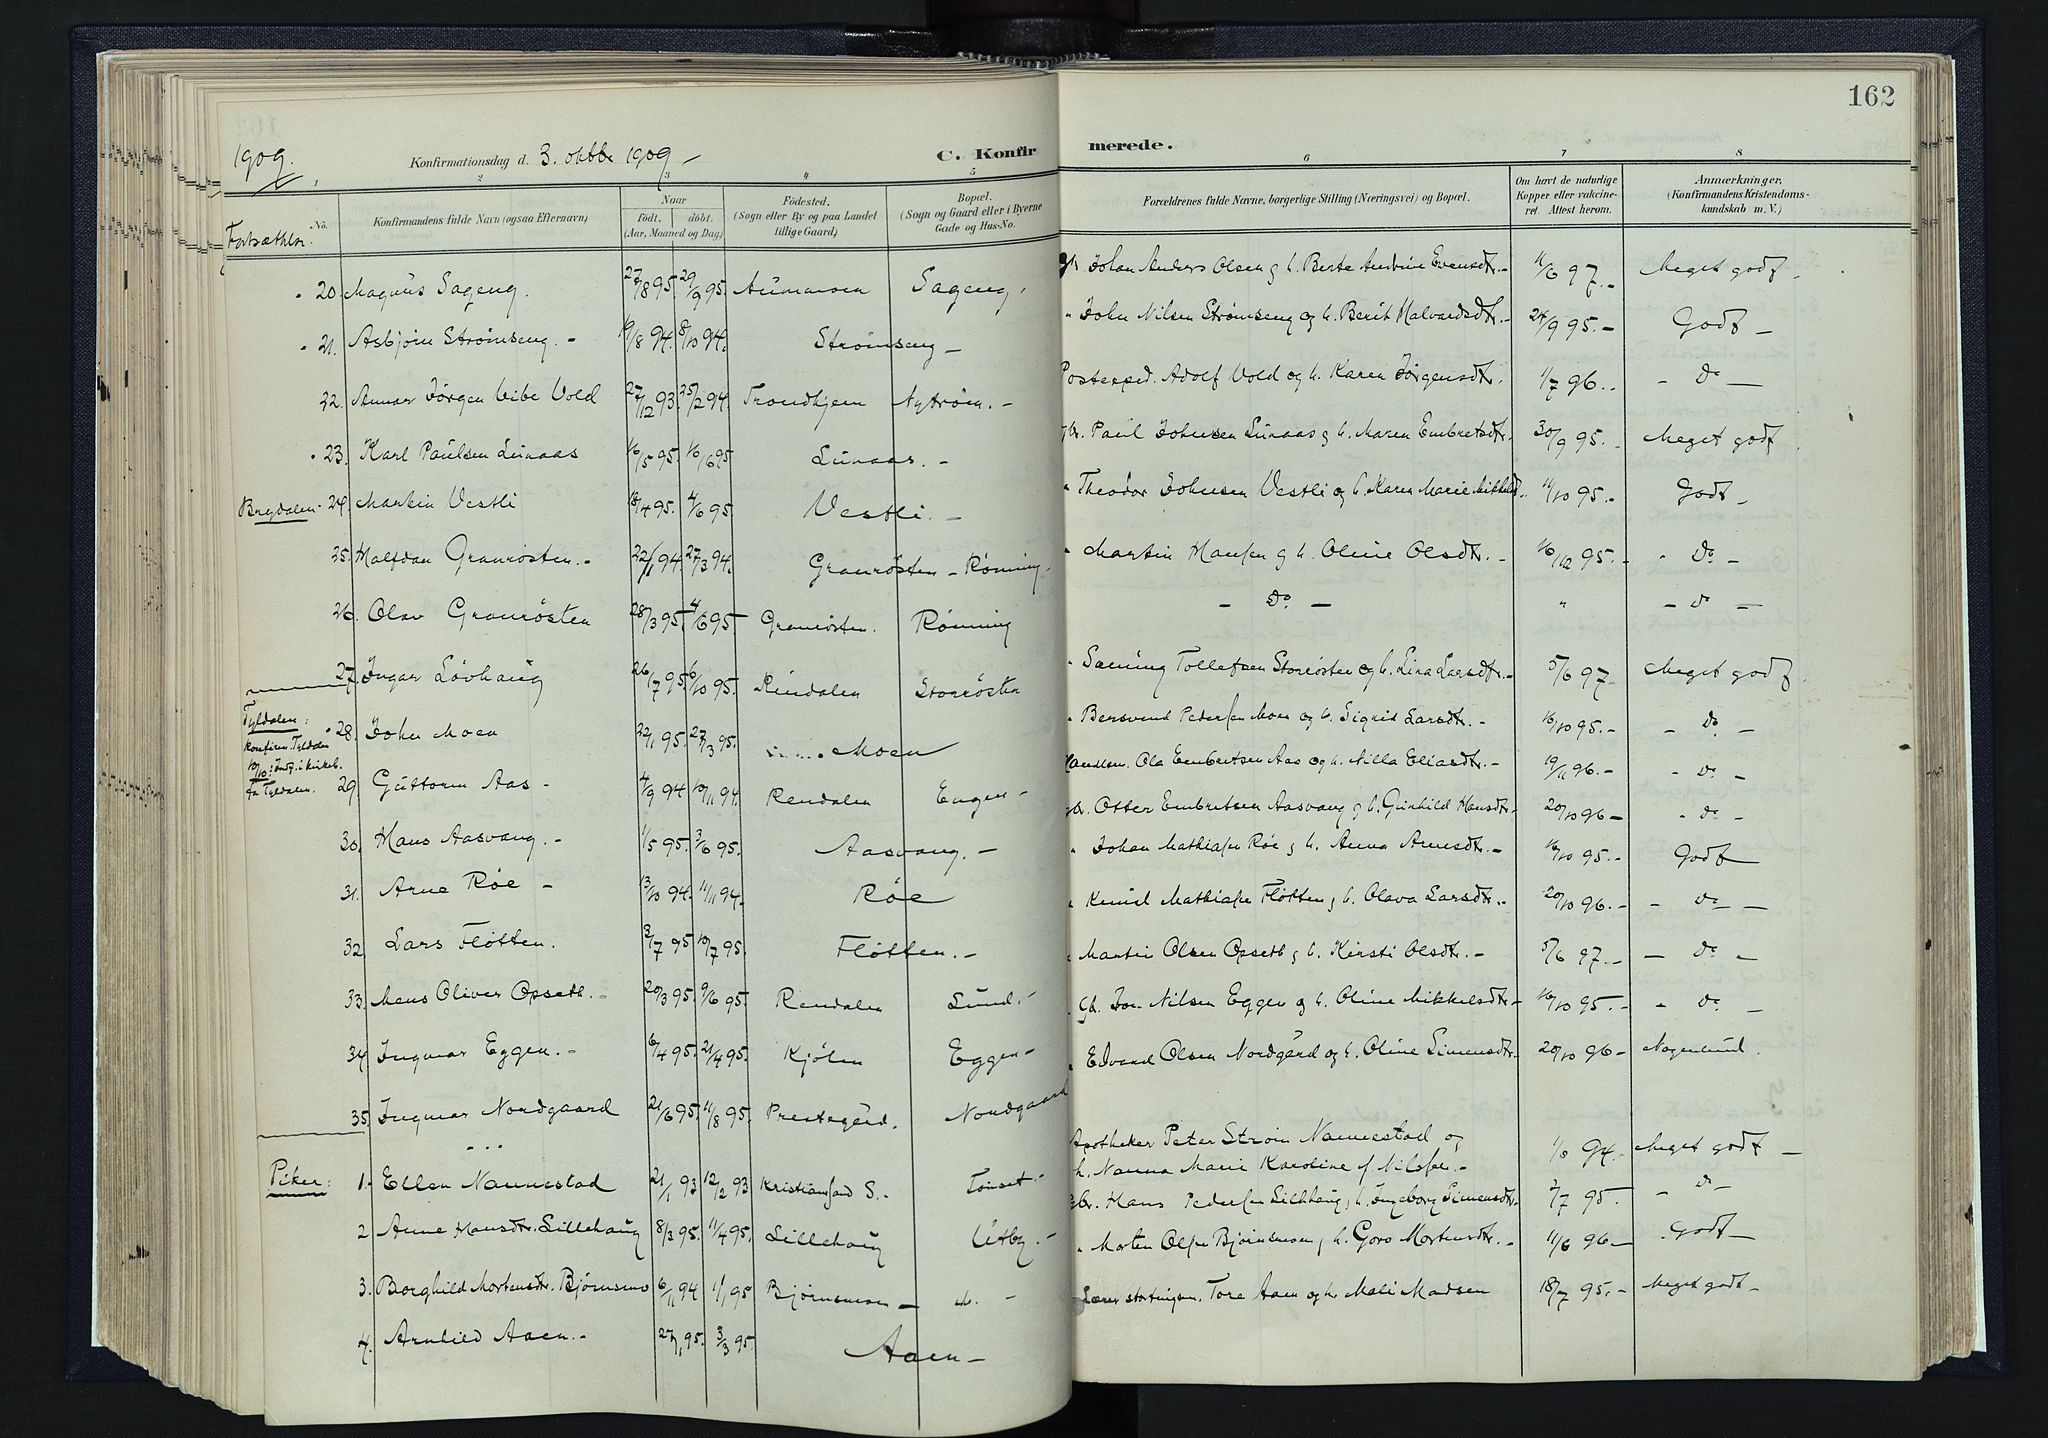 162
1909.
Konfirmationsdag d. 3. oktbr 1909 –
C. Konfirmerede.
1 2 3 4 5 6 7 8
No.
Konfirmandens fulde Navn (ogsaa Efternavn)
Naar
Født. døbt.
(Aar, Maaned og Dag)
Fødested.
(Sogn eller By og paa Landet
tillige Gaard)
Bopæl.
(Sogn og Gaard eller i Byerne
Gade og Hus-No.
Forældrenes fulde Navne, borgerlige Stilling (Næringsvei) og Bopæl.
Om havt de naturlige
Kopper eller vakcine-
ret. Attest herom.
Anmærkninger.
(Konfirmandens Kristendoms-
kundskab m. V.)
20. Magnus Sageng. 27/8 95. 29/9 95. Aumoen Sageng. Johan Anders Olsen og h. Berte Andrine Evensdtr. – 4/6 97. – Meget godt.
21. Asbjørn Strømseng. – 19/8 94. 8/10 94. Strømseng – " John Nilsen Strømseng og h. Berit Halvardsdtr. – 24/9 95. – Godt –
22. Annar Jørgen Vibe Vold 27/12 93. 25/2 94. Trondhjem Nytrøen. – Postexped. Adolf Vold og h. Karen Jørgensdtr. 1/7 96. – – Do –
23. Karl Paulsen Lunaas 16/5 95. 16/6 95 Lunaas. – gbr. Paul Johnsen Lunaas og h. Maren Embretsdtr. 30/9 95. – Meget godt
Brydalen. 24. Martin Vestli 18/4 95. 4/6 95 Vestli. – " Theodor Johnsen Vestli og h. Karen Marie Mikkelsd. 11/10 95. – Godt –
25. Halfdan Granrøsten. – 22/1 94. 27/3 94. Granrøsten – Rønning – " Martin Hansen og h. Oline Olsdtr. – 16/12 95. – " Do –
26. Olav Granrøsten 28/3 95. 4/6 95 Granrøsten. Rønning – Do. – " – Do –
27. Ingar Løvhaug 26/7 95. 6/10 95. Rendalen Storrøsten " Sæming Tollefsen Storrøsten og h. Lina Larsdtr. – 5/6 97 – Meget godt.
Tyldalen:
konfirm. Tyldalen
10/10: Indf. i kirkeb.
for Tyldalen.
28. John Moen 22/1 95. 27/3 95. Moen " Bersvend Pedersen Moen og h. Sigrid Larsdtr. – 16/10 95. – – Do –
29. Guttorm Aas – 4/9 94 10/11 94. Rendalen Engen – Handlsm. Ola Embretsen Aas og h. Nilla Eliasdtr. – 19/11 96. – – Do –
30. Hans Aasvang. – 1/5 95. 3/6 95. Aasvang. – gbr. Otter Embretsen Aasvang og h. Gunhild Hansdtr. – 20/10 96 – – Do –
31. Arne Røe – 13/10 94. 11/11 94. Røe " Johan Mathiasen Røe og h. Anna Arnesdtr. – 16/10 95. – Godt
32. Lars Fløtten. 3/7 95 10/7 95. Fløtten. – " Emil Mathiasen Fløtten og h. Olava Larsdtr. – 20/10 96. – – Do –
33. Mens Oliver Opseth. – 20/3 95. 9/6 95. Rendalen Lund. – " Martin Olsen Opseth og h. Kirsti Olsdtr. – 5/6 97. – – Do –
34. Ingmar Eggen. – 6/4 95. 21/4 95. Kjølen Eggen – Gb. Jon Nilsen Eggen og h. Oline Mikkelsdtr. – 16/10 95. – – Do –
35. Ingmar Nordgaard 21/6 95. 11/8 95. Prestegård. Nordgaard " Edvard Olsen Nordgård og h. Oline Simensdtr. – 20/10 96 – Nogenlund.
Piker:
1. – Ellen Nannestad 21/1 93 12/2 93. Kristiansand S. – Tønset – Apotheker Peter Strøm Nannestad og
h. Nanna Marie Karoline f. Nilsen. – 1/6 94. – Meget godt –
2 Anne Hansdtr. Lillehaug 8/3 95. 11/4 95. Lillehaug Utby. – Gbr. Hans Pedersen Lillehaug, h. Ingeborg Simensdtr. – 2/7 95. – Do –
3. Borghild Mortensdtr. Bjørnsmo 6/11 94 1/1 95 Bjørnsmoen – " Morten Olsen Bjørnsmoen og h. Goro Mortensdtr. – 11/6 96 – Godt –
4. Arnhild Aaen. – 27/1 95. 3/3 95. Aaen – Lærer stortingsm. Tore Aaen og h. Mali Madsen 18/7 95. – Meget godt –